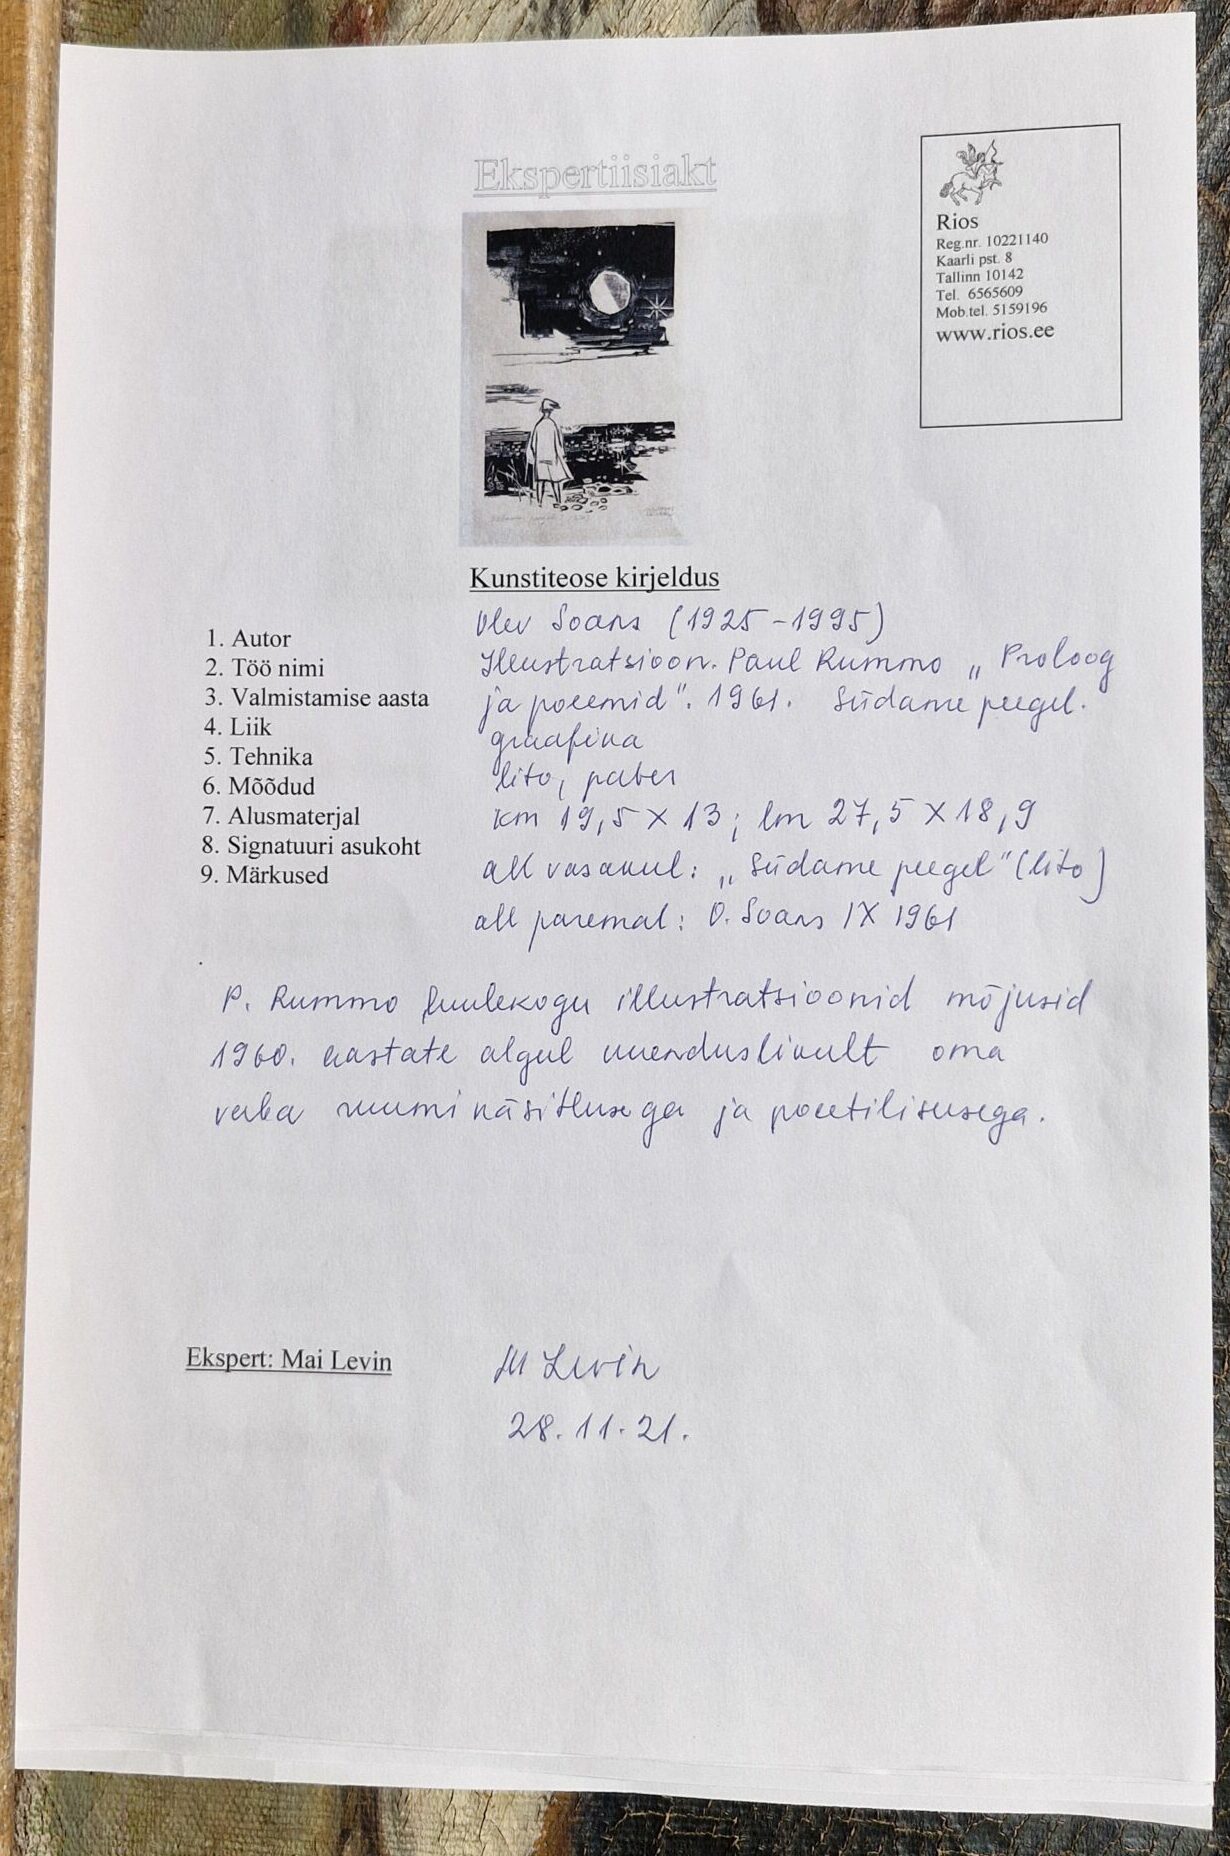 Ekspertiisiakt
Rios
Reg.nr. 10221140
Kaarli pst. 8
Tallinn 10142
Tel. 6565609
Mob.tel. 5159196
www.rios.ee
Kunstiteose kirjeldus
1. Autor
2. Töö nimi
3. Valmistamise aasta
4. Liik
5. Tehnika
6. Mõõdud
7. Alusmaterjal
8. Signatuuri asukoht
9. Märkused
Olev Soans (1925-1995)
Illustratsioon. Paul Rummo „Proloog
ja poeemid". 1961. Südame peegel.
graafika
lito, paber
km 19,5 x 13; lm 27,5 x 18,9
all vasakul: „Südame peegel" (lito)
all paremal: O. Soans IX 1961
P. Rummo luulekogu illustratsioonid mõjusid
1960. aastate algul uuenduslikult oma
vaba ruumikäsitlusega ja poeetilisusega.
Ekspert: Mai Levin
M Levin
28.11.21.